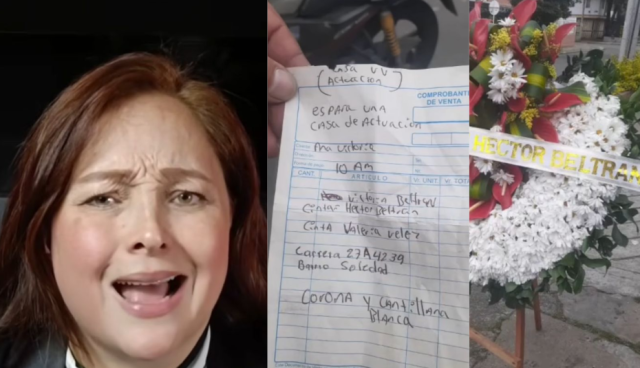 Casa VV
(Actuacion)
COMPROBANTE
DE VENTA
es para una
casa de Actuacion
Ma victoria
10 AM
CANT. ARTÍCULO V/. UNIT. V/. TOTA
Victoria Beltran
Cinta= Hector Beltran
Cinta Valeria velez
Carrera 27A 4239
Barrio Soledad
Corona y cantillana
Blanca
HECTOR BELTRAN